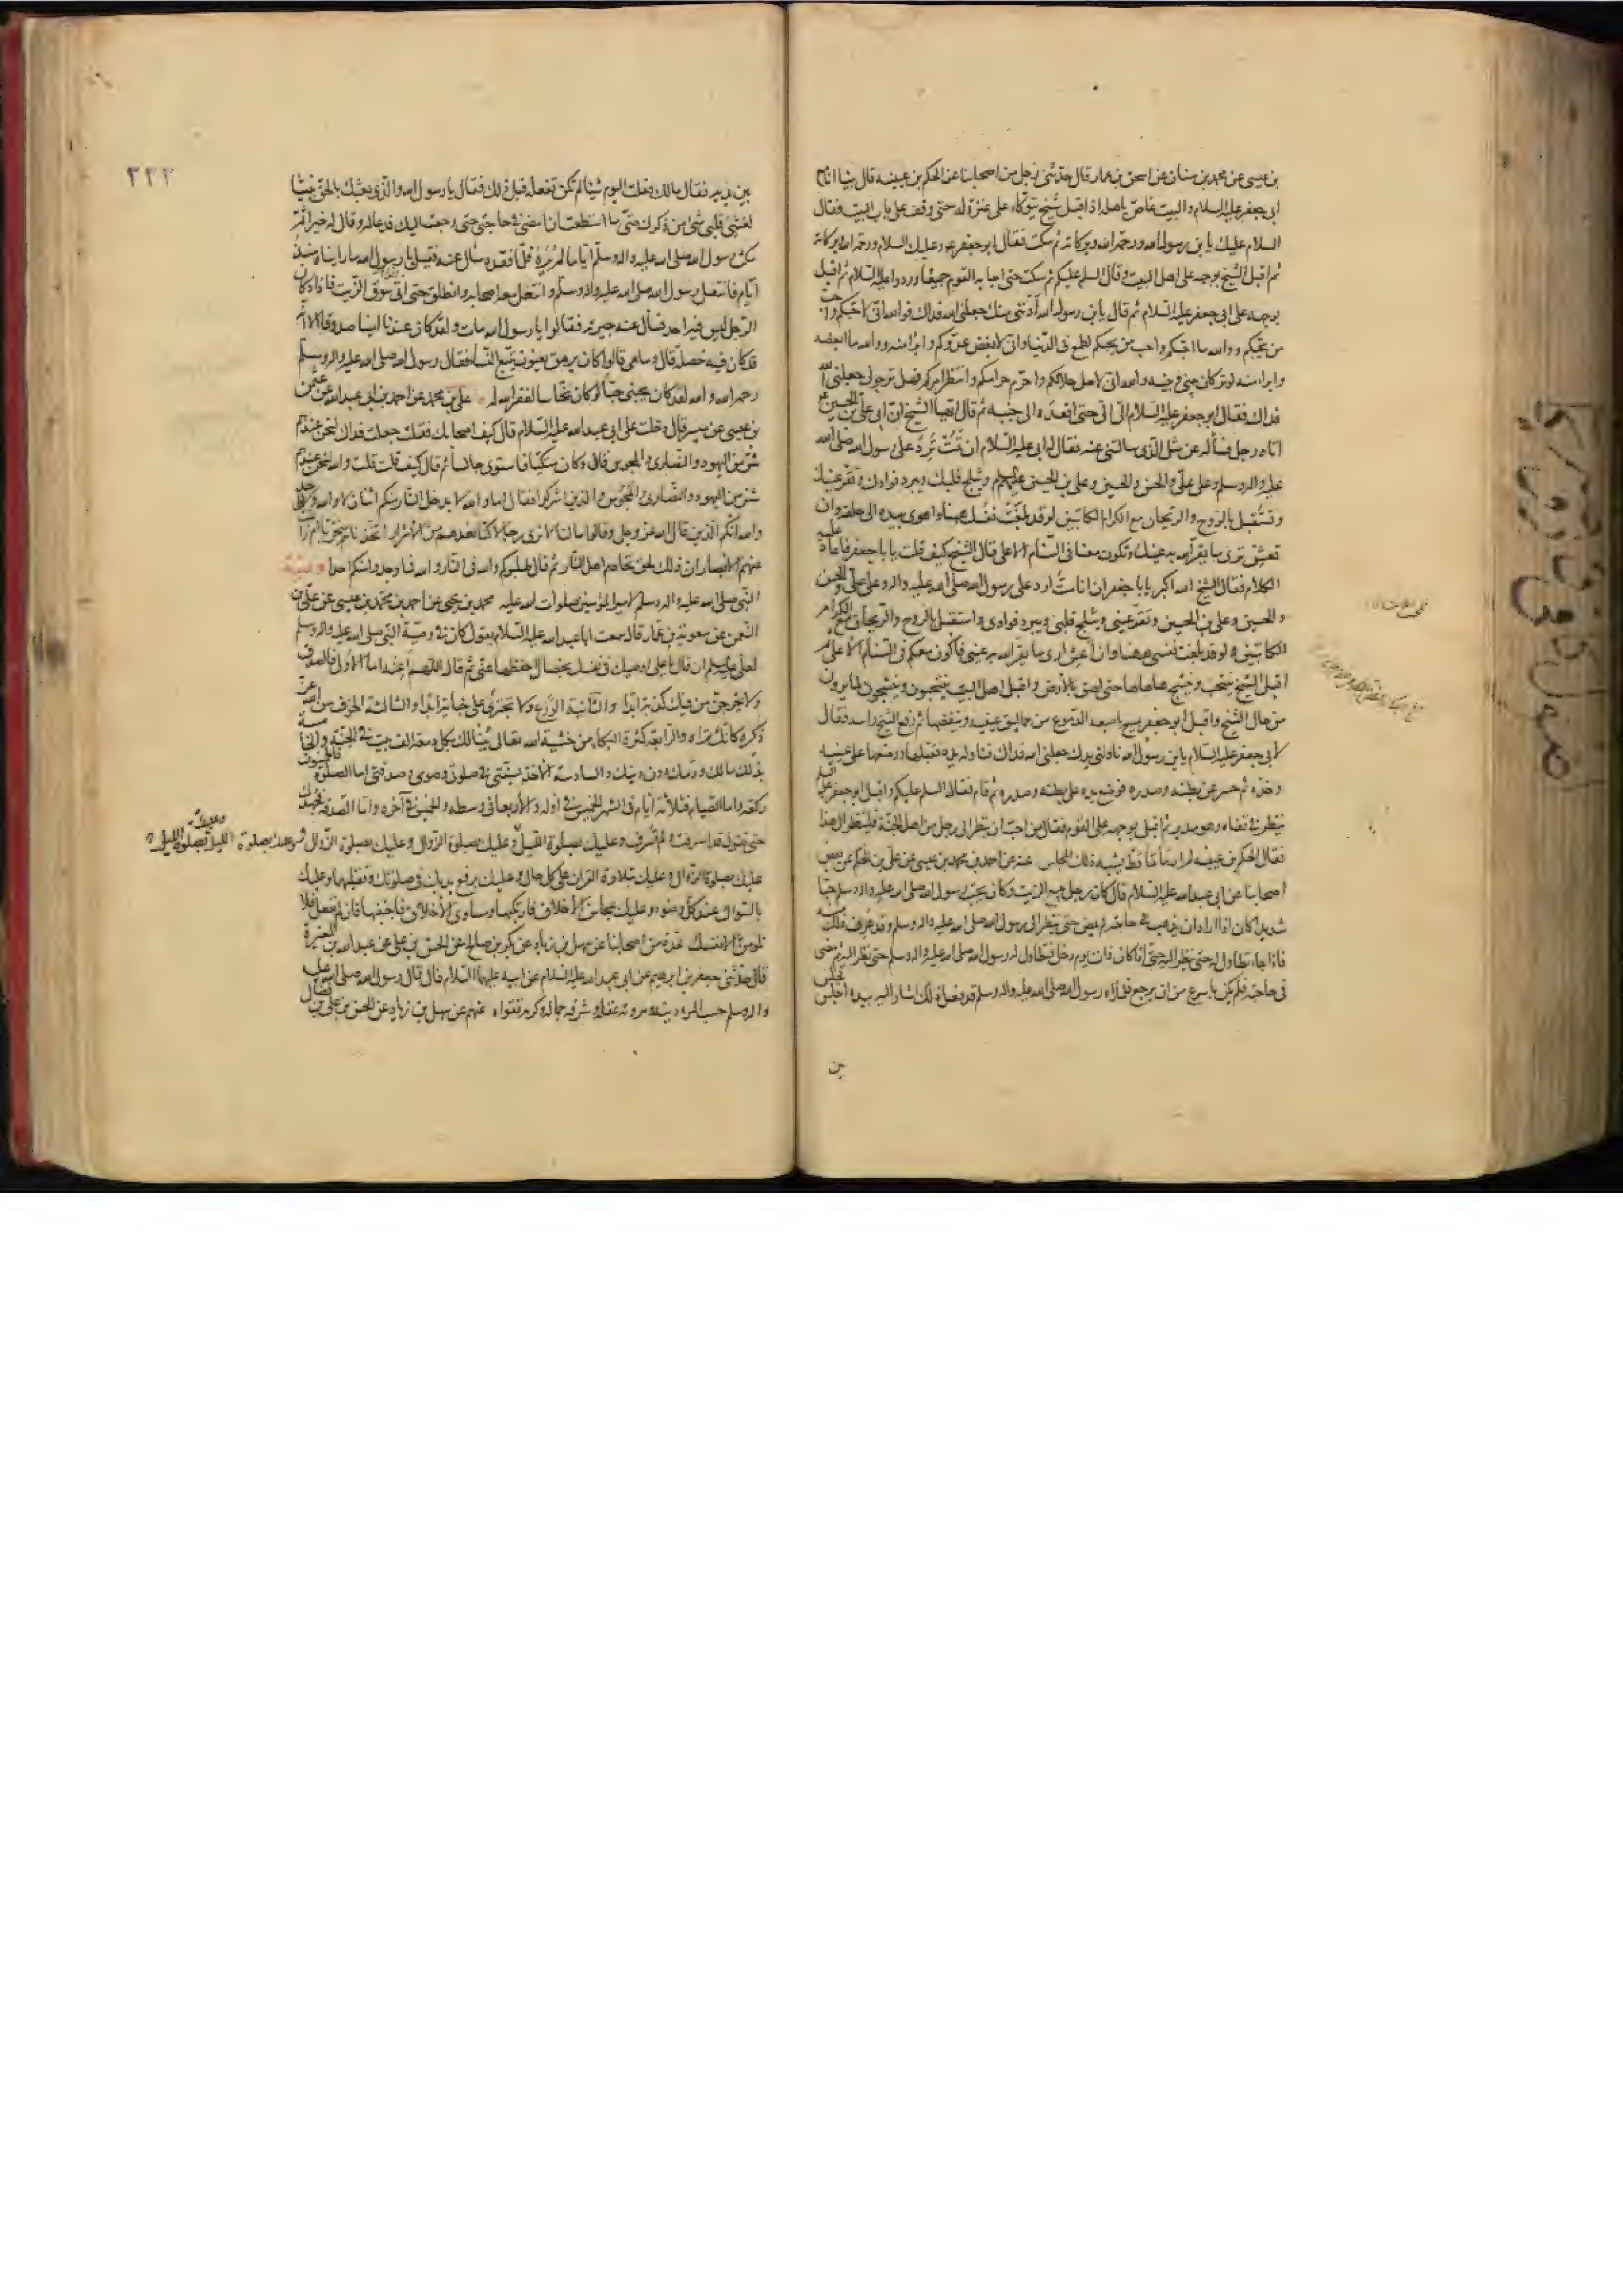 بن عيسى عن محمد بن سنان عن اسحق بن عمار قال حدثنى رجل من اصحابنا عن الحكم بن عيينه قال بينا انا مع
ابى جعفر عليه السلام والبيت غاص باهله اذا اقبل شيخ يتوكاء على عنزة له حتى وقف على باب البيت فقال
السلام عليك يا بن رسول الله ورحمة الله وبركاته ثم سكت فقال ابو جعفر ع وعليك السلام ورحمة الله وبركاته
ثم اقبل الشيخ بوجهه على اهل البيت وقال السلم عليكم ثم سكت حتى اجابه القوم جميعا وردوا عليه السلام ثم اقبل
بوجهه على ابى جعفر عليه السلام ثم قال يا بن رسول الله أدننى منك جعلنى الله فداك فوالله انى لاحبكم واحب
من يحبكم ووالله ما احبكم واحب من يحبكم لطمع فى الدنيا وانى لابغض عدوكم وابرأ منه ووالله ما ابغضه
وابرأ منه لوتر كان بينى وبينه والله انى لاحل حلالكم واحرم حرامكم وانتظر امركم فهل ترجو لى جعلنى الله
فداك فقال ابو جعفر عليه السلام الىّ الىّ حتى اقعده الى جنبه ثم قال ايها الشيخ ان ابى على بن الحسين ع
اتاه رجل فسأله عن مثل الذى سالتنى عنه فقال له ابى عليه السلام ان تمت ترد على رسول الله صلى الله
عليه واله وسلم وعلى على والحسن والحسين وعلى بن الحسين عليهم ويثلج قلبك ويبرد فوادك وتقر عينك
وتستقبل بالروح والريحان مع الكرام الكاتبين لو قد بلغت نفسك ههنا واهوى بيده الى حلقه وان
تعش ترى ما يقر الله به عينك وتكون معنا فى السنام الاعلى قال الشيخ كيف قلت يا با جعفر فاعاد عليه
الكلام فقال الشيخ الله اكبر يا با جعفر ان انا مت ارد على رسول الله صلى الله عليه واله وعلى على والحسن
والحسين وعلى بن الحسين وتقر عينى ويثلج قلبى ويبرد فوادى واستقبل بالروح والريحان مع الكرام
الكاتبين لو قد بلغت نفسى ههنا وان اعش ارى ما يقر الله به عينى فاكون معكم فى السنام الاعلى ثم
اقبل الشيخ ينتحب وينشج هاهاها حتى لصق بالارض واقبل اهل البيت ينتحبون وينشجون لما يرون
من حال الشيخ واقبل ابو جعفر يمسح باصبعه الدموع من حماليق عينيه وينفضها ثم رفع الشيخ راسه فقال
لابى جعفر عليه السلام يا بن رسول الله ناولنى يدك جعلنى الله فداك فناوله يده فقبلها ووضعها على عينيه
وخده ثم حسر عن بطنه وصدره فوضع يده على بطنه وصدره ثم قام فقال السلم عليكم واقبل ابو جعفر عليه السلم
ينظر فى قفاه وهو مدبر ثم اقبل بوجهه على القوم فقال من احب ان ينظر الى رجل من اهل الجنة فلينظر الى هذا
فقال الحكم بن عيينه لم ار مأتما قط يشبه ذلك المجلس عنه عن احمد بن محمد بن عيسى عن على بن الحكم عن بعض
اصحابنا عن ابى عبد الله عليه السلام قال كان رجل يبيع الزيت وكان يحب رسول الله صلى الله عليه واله وسلم حبا
شديدا كان اذا اراد ان يذهب فى حاجته لم يمض حتى ينظر الى رسول الله صلى الله عليه واله وسلم وقد عرف ذلك منه
فاذا جاء تطاول له حتى ينظر اليه حتى اذا كان ذات يوم دخل فتطاول له رسول الله صلى الله عليه واله وسلم حتى نظر اليه ثم مضى
فى حاجته فلم يكن باسرع من ان يرجع فلما رآه رسول الله صلى الله عليه واله وسلم قد فعل ذلك اشار اليه بيده اجلس فجلس
بين
٣٢٢
بين يديه فقال مالك فعلت اليوم شيئا لم تكن تفعله قبل ذلك فقال يا رسول الله والذى بعثك بالحق نبيا
لغشى قلبى شئ من ذكرك حتى ما استطعت ان امضى فى حاجتى حتى رجعت اليك فدعا له وقال له خيرا ثم
مكث رسول الله صلى الله عليه واله وسلم اياما لم يره فلما فقده سال عنه فقيل يا رسول الله ما رايناه منذ
ايام فانتعل رسول الله صلى الله عليه واله وسلم وانتعل معه اصحابه وانطلق حتى اتى سوق الزيت فاذا دكان
الرجل ليس فيه احد فسأل عنه جيرته فقالوا يا رسول الله مات ولقد كان عندنا امينا صدوقا الا انه
قد كان فيه خصلة قال وما هى قالوا كان يرهق يعنون يتبع النساء فقال رسول الله صلى الله عليه واله وسلم
رحمه الله والله لقد كان يحبنى حبا لو كان نخاسا لغفر الله له على بن محمد عن احمد بن ابى عبد الله عن عثمن
بن عيسى عن ميسر قال دخلت على ابى عبد الله عليه السلام قال كيف اصحابك فقلت جعلت فداك لنحن عندهم
شر من اليهود والنصارى والمجوس قال وكان متكيا فاستوى جالسا ثم قال كيف قلت قلت والله لنحن عندهم
شر من اليهود والنصارى والمجوس والذين اشركوا فقال اما والله لا يدخل النار منكم اثنان لا والله ولا واحد
والله انكم الذين قال الله عز وجل وقالوا ما لنا لا نرى رجالا كنا نعدهم من الاشرار اتخذناهم سخريا ام زاغت
عنهم الابصار ان ذلك لحق تخاصم اهل النار ثم قال طلبوكم والله فى النار والله فما وجدوا منكم احدا وصية
النبى صلى الله عليه واله وسلم لامير المؤمنين صلوات الله عليه محمد بن يحيى عن احمد بن محمد بن عيسى عن على بن
النعمن عن معوية بن عمار قال سمعت ابا عبد الله عليه السلام يقول كان فى وصية النبى صلى الله عليه واله وسلم
لعلى عليه السلم ان قال يا على اوصيك فى نفسك بخصال احفظها عنى ثم قال اللهم اعنه اما الاولى فالصدق
ولا يخرجن من فيك كذبة ابدا والثانية الورع ولا تجترى على خيانة ابدا والثالثة الخوف من الله عز
ذكره كانك تراه والرابعة كثرة البكاء من خشية الله تعالى يبنى لك بكل دمعة الف بيت فى الجنة والخامسة
بذلك مالك ودمك دون دينك والسادسة الاخذ بسنتى فى صلوتى وصومى وصدقتى اما الصلوة فالخمسون
ركعة واما الصيام فثلاثة ايام فى الشهر الخميس فى اوله والاربعا فى وسطه والخميس فى آخره واما الصدقة فجهدك
حتى تقول قد اسرفت ولم تسرف وعليك بصلوة الليل وعليك بصلوة الزوال وعليك بصلوة الزوال
عليك بصلوة الزوال وعليك بتلاوة القران على كل حال وعليك برفع يديك فى صلوتك وتقليبهما وعليك
بالسواك عند كل وضوء وعليك بمحاسن الاخلاق فاركبها ومساوى الاخلاق فاجتنبها فان لم تفعل فلا
تلومن الا نفسك عدة من اصحابنا عن سهل بن زياد عن بكر بن صالح عن الحسن بن على عن عبد الله بن المغيرة
قال حدثنى جعفر بن ابرهيم عن ابى عبد الله عليه السلام عن ابيه عليهما السلام قال قال رسول الله صلى الله عليه
واله وسلم حسب المرء دينه ومروته عقله وشرفه جماله وكرمه تقواه عنهم عن سهل بن زياد عن الحسن بن على بن فضال